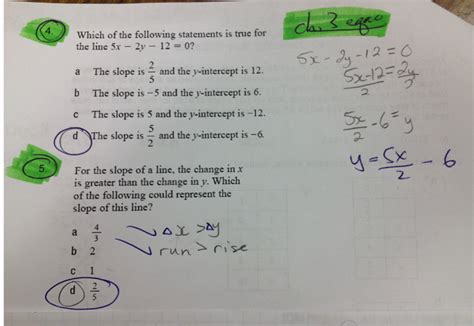 ch. 3 eqno
4. Which of the following statements is true for
the line 5x − 2y − 12 = 0?
a The slope is 2/5 and the y-intercept is 12.
b The slope is −5 and the y-intercept is 6.
c The slope is 5 and the y-intercept is −12.
d The slope is 5/2 and the y-intercept is −6.
5x - 2y - 12 = 0
5x-12 = 2y
2 2
5x/2 - 6 = y
y = 5x/2 - 6
5. For the slope of a line, the change in x
is greater than the change in y. Which
of the following could represent the
slope of this line?
a 4/3
b 2
c 1
d 2/5
Δx > Δy
run > rise